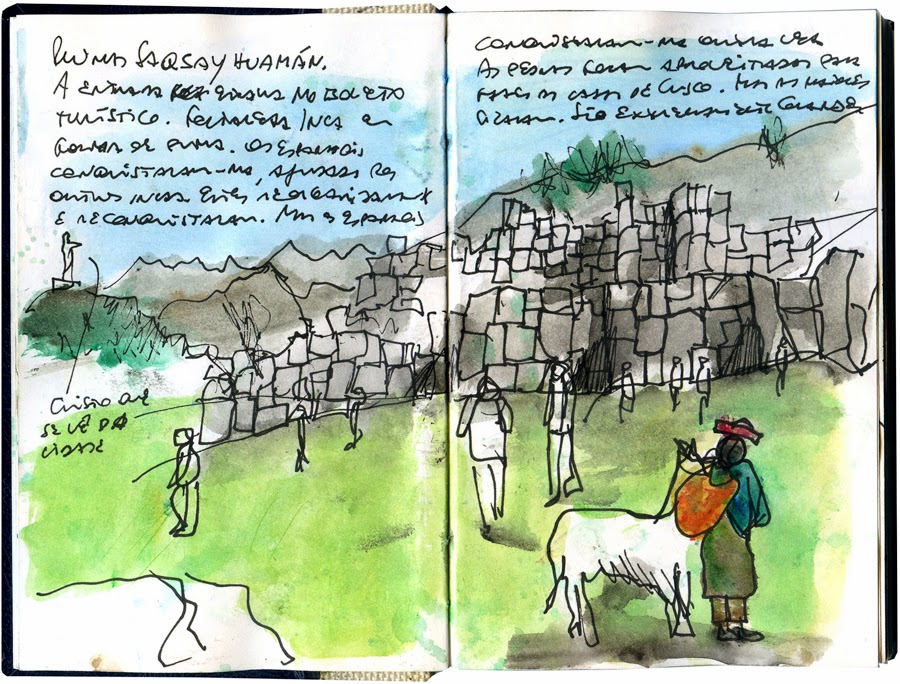 RUINAS SAQSAYHUAMÁN.
A ENTRADA NO BOLETO
TURÍSTICO. FORTALEZA INCA EM
FORMA DE PUMA. OS ESPANHÓIS
CONQUISTARAM-NA, AJUDADOS POR
OUTROS INCAS. ESTES
E RECONQUISTARAM. MAS OS ESPANHÓIS
CONQUISTARAM-NA OUTRA VEZ
AS PEDRAS FORAM APROVEITADAS PARA
FAZER AS CASAS DE CUSCO. MAS AS MAIORES
FICARAM. SÃO EXTREMAMENTE GRANDES
CRISTO QUE
SE VÊ DA
CIDADE